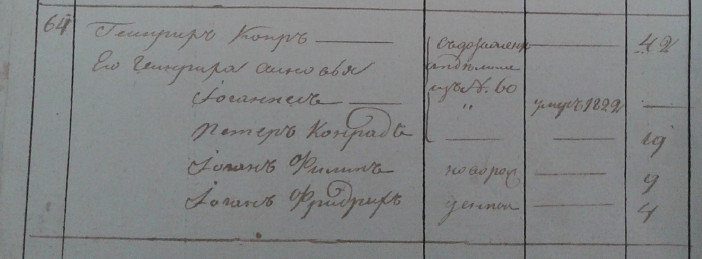 64 Генрихъ Конръ съ дозволенія 42
Его Генриха сыновья отдѣлили
Іоганнесъ изъ №. 60 умеръ 1822
Петеръ Конрадъ " 19
Іоганъ Филипъ новорож 9
Іоганъ Фридрихъ денные 4